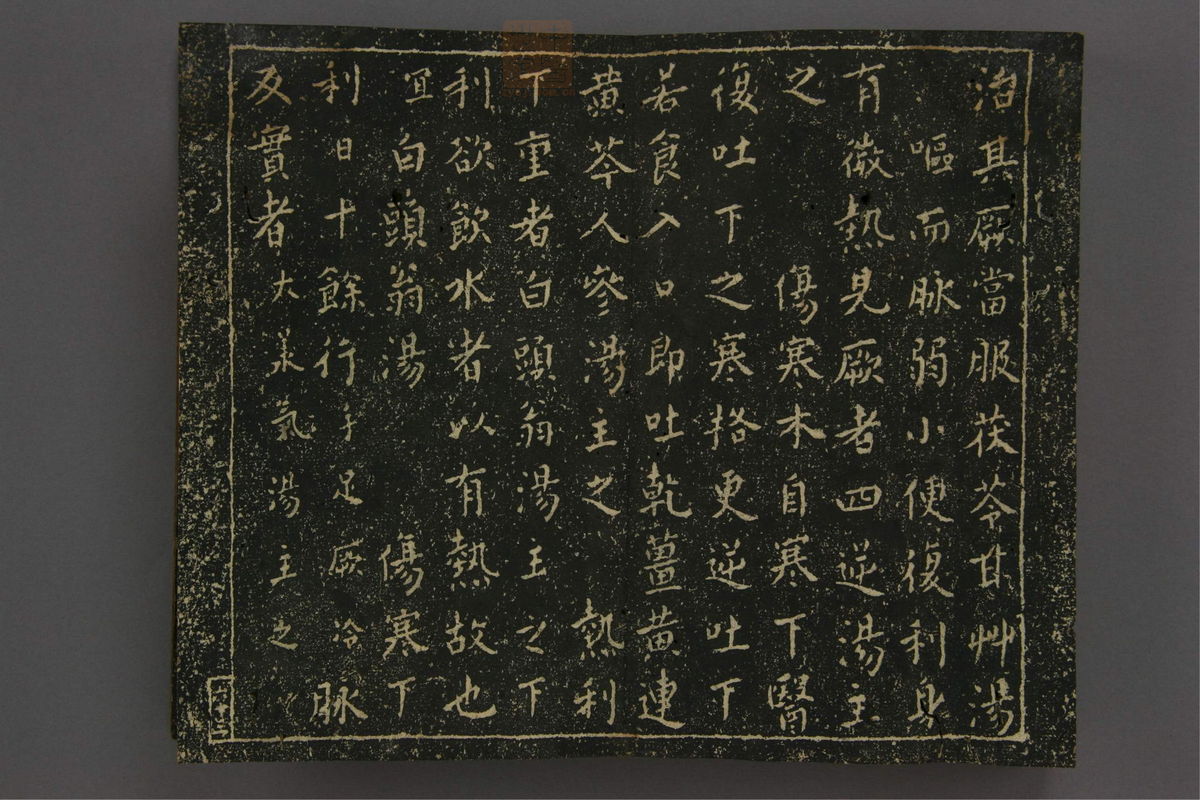 治其厥當服茯苓甘艸湯
嘔而脈弱小便復利身
有微熱見厥者四逆湯主
之　傷寒本自寒下醫
復吐下之寒格更逆吐下
若食入口即吐乾薑黄連
黄芩人參湯主之　熱利
下重者白頭翁湯主之下
利欲飲水者以有熱故也
宜白頭翁湯　傷寒下
利日十餘行手足厥冷脈
反實者大承氣湯主之